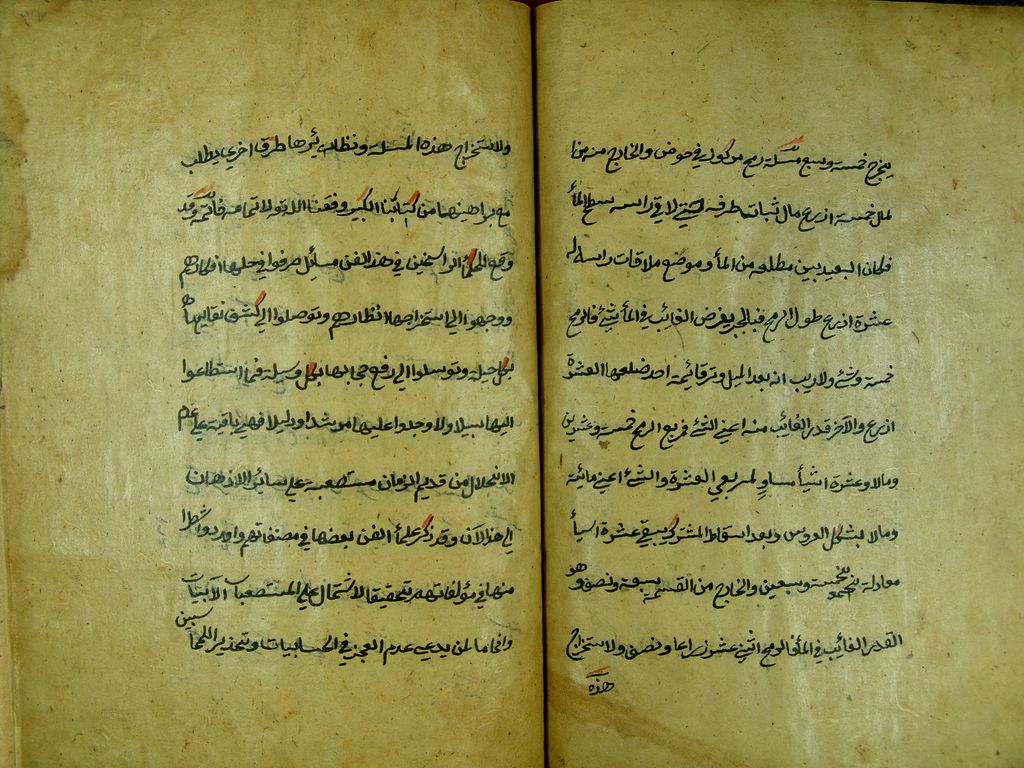 يخرج خمسة وسبع مسئلة رمح مركوز في حوض والخارج منه من الما
خمسة اذرع مال ثبات طرفه حتي لاقي راسه سطح المأ
فكان البعد بين مطلعه من المأ وموضع ملاقات راسه له
عشرة اذرع طول الرمح فبالجبر يفرض الغائب في المأ شئ فالرمح
خمسة وشئ ولاريب انه بعد الميل وتر قائمة احد ضلعها العشرة
اذرع والآخر قدر الغائب منه اعني الشئ فمربع الرمح خمسة وعشرين
ومالا وعشرة اشيأ مساوٍ لمربعي العشرة والشئ اعني مائة
ومالا بشكل العروس وبعد اسقاط المشترك يبقي عشرة اشيأ
معادلة بخمسة وسبعين والخارج من القسمة سبعة ونصف وهو
القدر الغائب في المأ فالرمح اثني عشر ذراعا ونصف ولاستخراج
هذه
ولاستخراج هذه المسئلة ونظائرها طرق اخري يطلب
مع براهينها من كتابنا الكبير وفقنا الله تع لاتمامه خاتمة وقد
وقع للحكمأ الراسخين في هذا الفن مسائل صرفوا في حلها افكارهم
ووجهوا الي استخراجها انظارهم وتوصلوا الي كشف نقابها
بكل حيلة وتوسلوا الي رفع حجابها بكل وسيلة فما استطاعوا
اليها سبيلا ولا وجدوا عليها مرشدا ودليلا فهي باقية علي عدم
الانحلال من قديم الزمان مستصعبة علي سائر الاذهان
الي هذا الآن وقد ذكر علمأ الفن بعضها في مصنفاتهم واوردوا شطرا
منها في مؤلفاتهم تحقيقا لاشتمال علي المستصعبات الآبيات
وافحاما لمن يدعي عدم العجز في الحسابيات وتحذيرا للمحاسبين